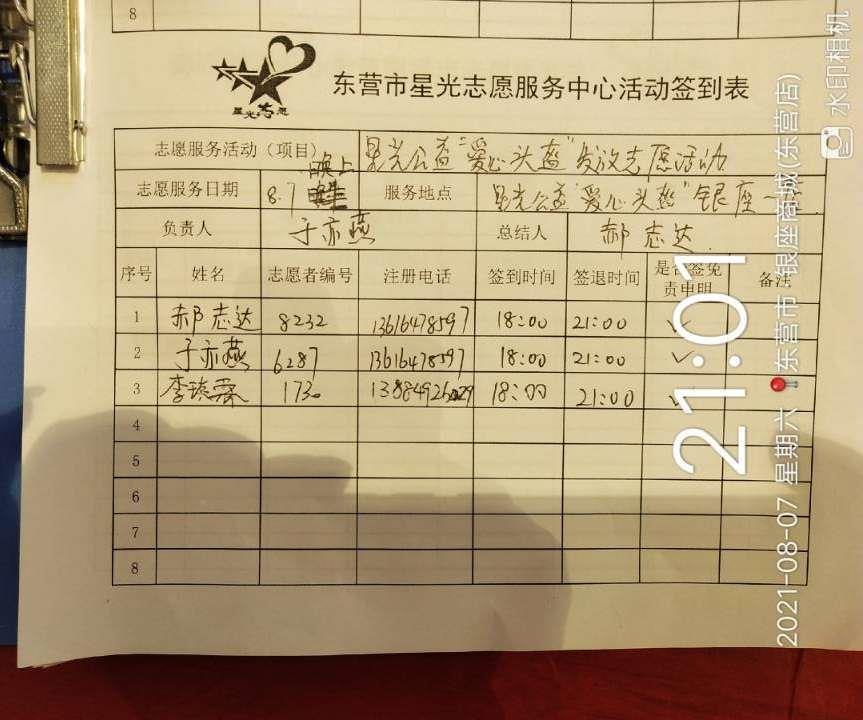 8
星光志愿
东营市星光志愿服务中心活动签到表
志愿服务活动（项目） 星光公益"爱心头盔"发放志愿活动
志愿服务日期 8.7 晚上 服务地点 星光公益"爱心头盔"银座一店
负责人 于亦燕 总结人 郝志达
序号 姓名 志愿者编号 注册电话 签到时间 签退时间 是否签免责申明 备注
1 郝志达 8232 13616478597 18:00 21:00 ✓
2 于亦燕 6287 13616478597 18:00 21:00 ✓
3 李 173 18:00 21:00 ✓
4
5
6
7
8
21:01
2021-08-07 星期六 东营市·银座商城(东营店)
水印相机